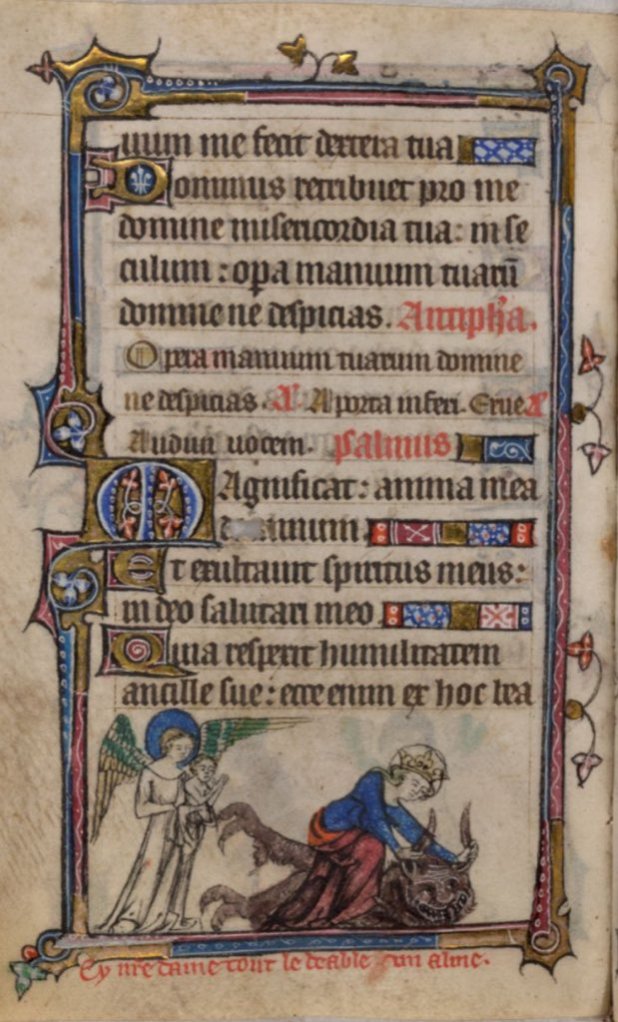 uum me fecit dextera tua
Dominus retribuet pro me
domine misericordia tua: in se
culum: opa manuum tuarū
domine ne despicias. Antiph'a.
Opera manuum tuarum domine
ne despicias. A porta inferi. Erue
Audiui uocem. psalmus
Magnificat: anima mea
dominum
Et exultauit spiritus meus:
in deo salutari meo
Quia respexit humilitatem
ancille sue: ecce enim ex hoc bea
Cy nre dame tout le deable un alme.